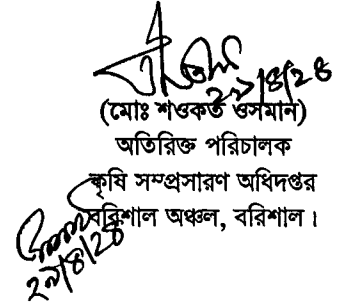 ২৯/৪/২৪
(মোঃ শওকত ওসমান)
অতিরিক্ত পরিচালক
কৃষি সম্প্রসারণ অধিদপ্তর
বরিশাল অঞ্চল, বরিশাল।
২৯/৪/২৪